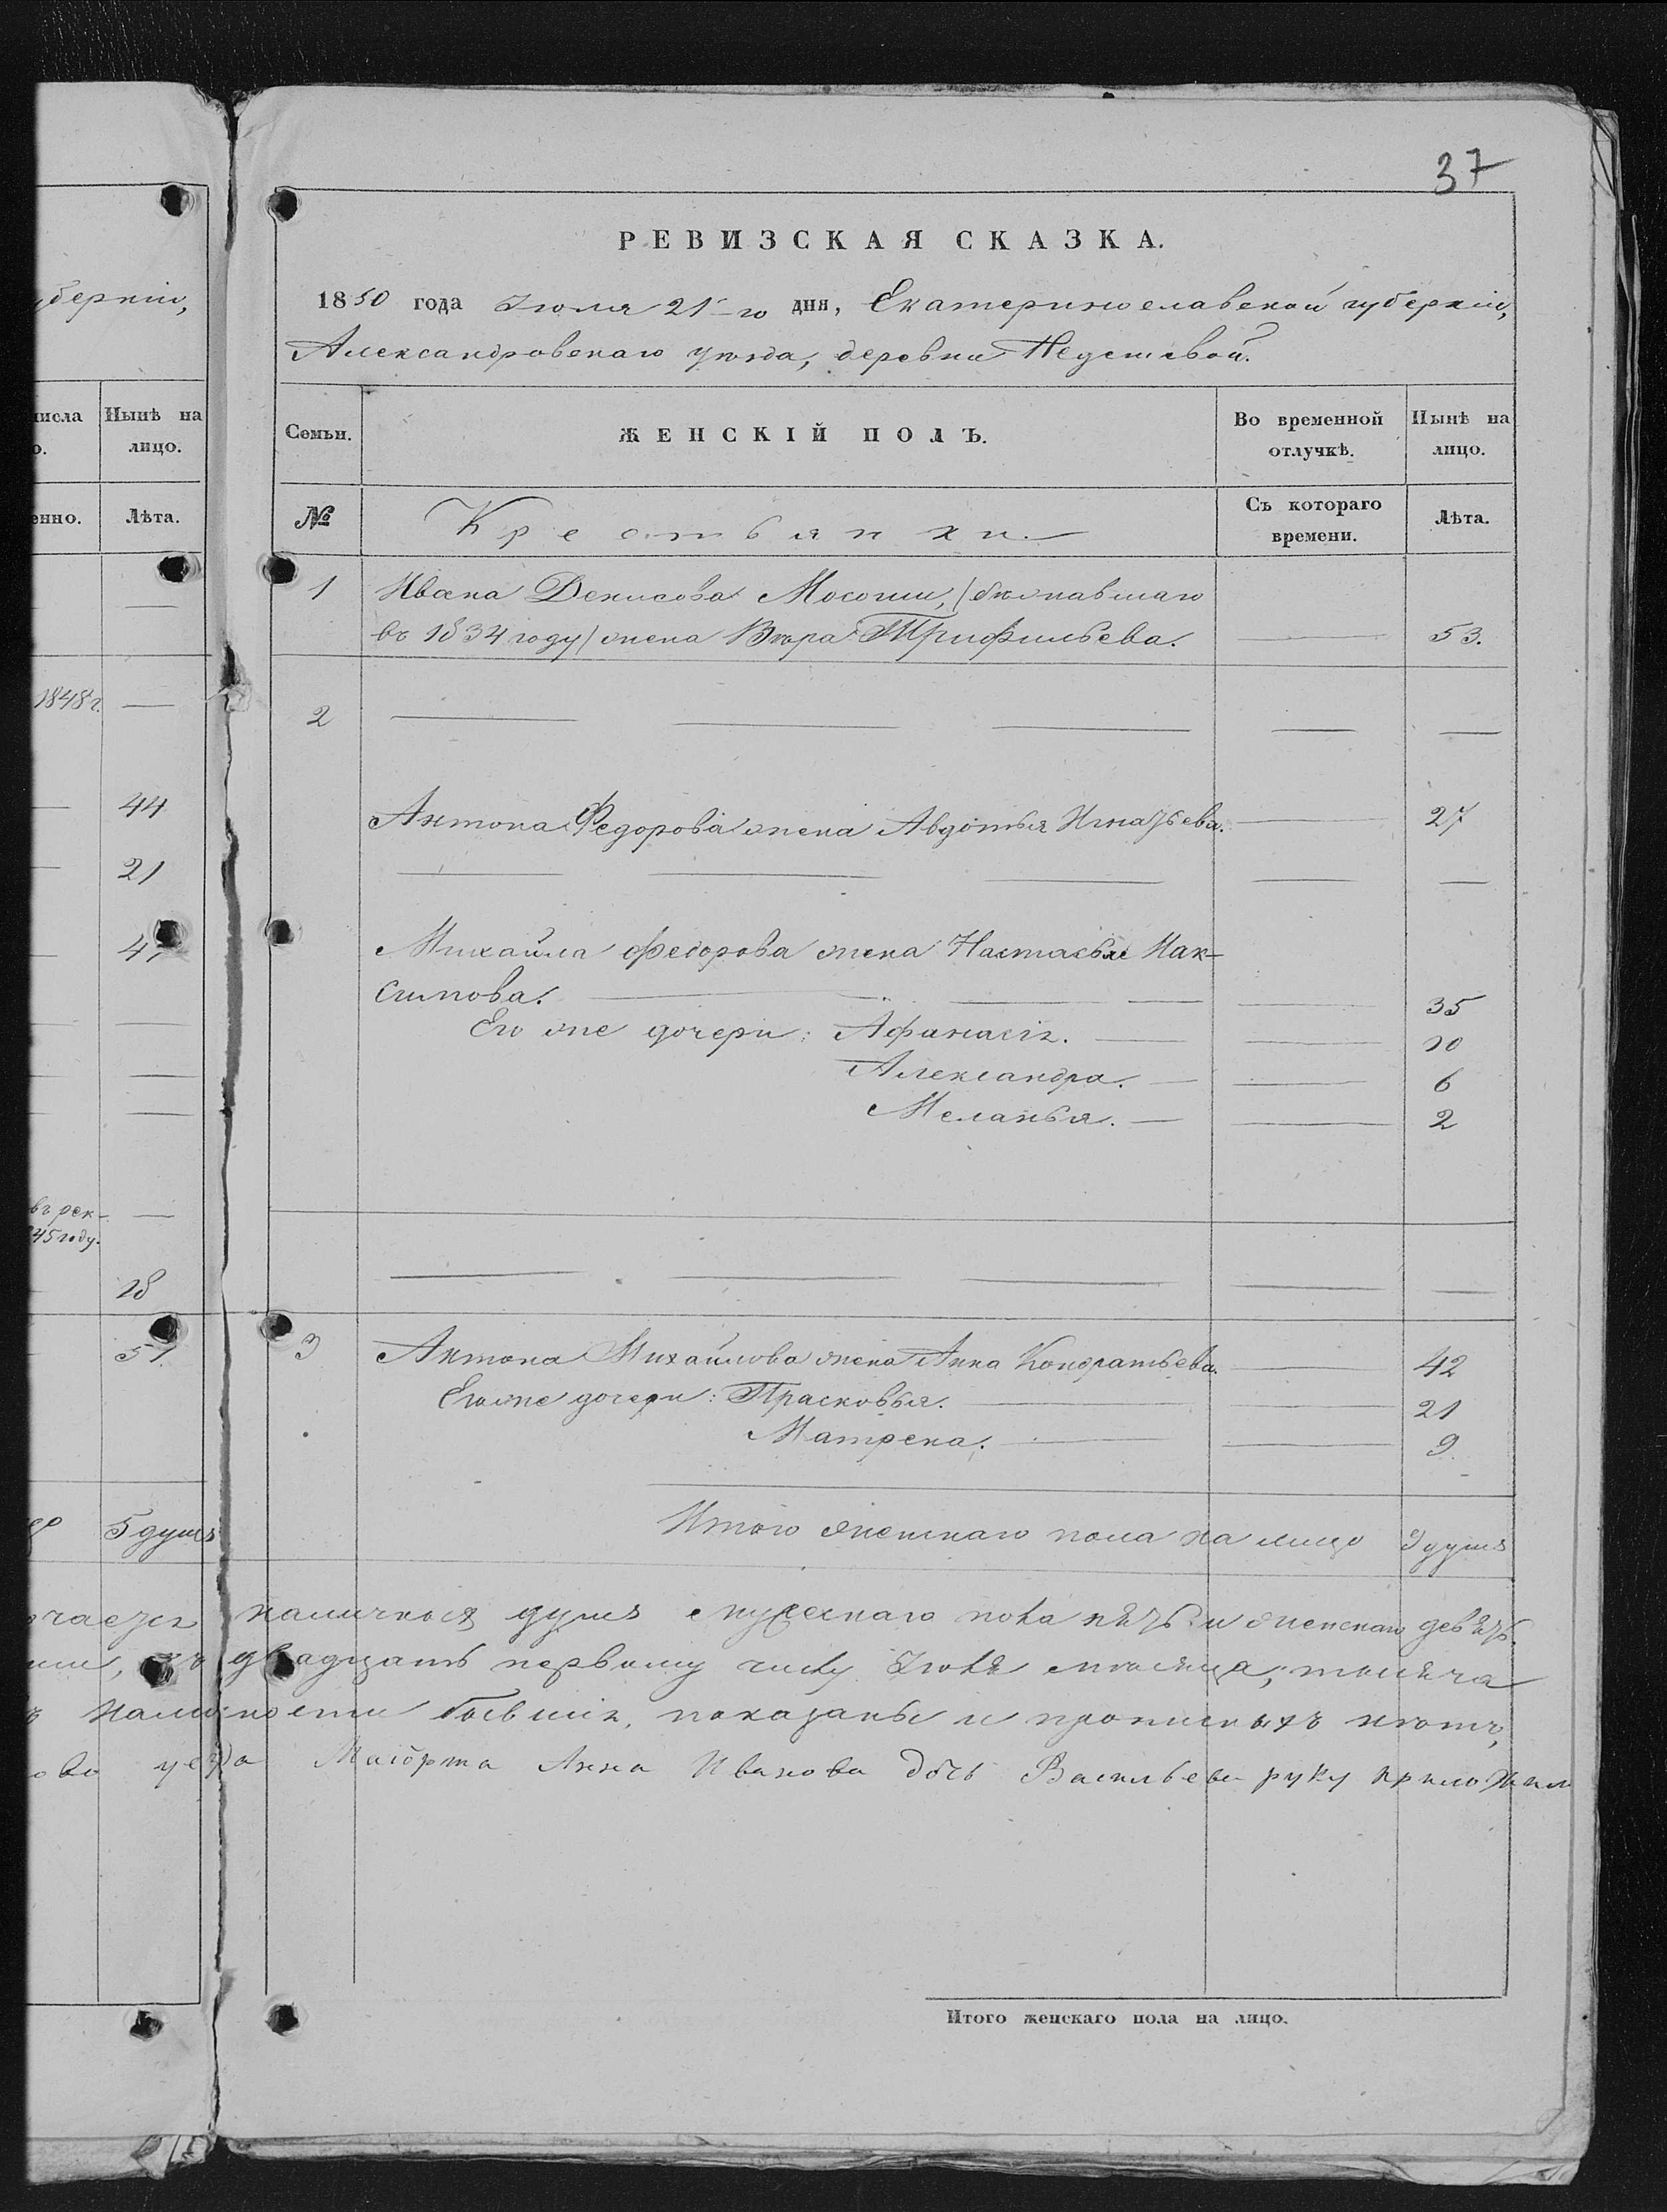 37
РЕВИЗСКАЯ СКАЗКА.
1850 года Июля 21-го дня, Екатеринославской губерніи,
Александровскаго уѣзда, деревни
уберніи,
числа Нынѣ на
о. лицо.
енно. Лѣта.
Семьи. ЖЕНСКІЙ ПОЛЪ. Во временной отлучкѣ. Нынѣ на лицо.
№ Крестьянки. Съ котораго времени. Лѣта.
1 Ивана Денисова (бѣжавшаго
въ 1834 году) жена Вѣра Трифильева. — 53.
1848 г. —
2 — — — — —
44
Антона Федорова жена Авдотья Игнатьева. — 27
21
— — — — —
Михайла Федорова жена Настасья Мак-
симова. — — — — 35
Его же дочери: Афанасія. — — 10
Александра. — — 6
Меланья. — — 2
въ рек- —
45 году.
18
— — — — —
51.
3 Антона Михайлова жена Анна Кондратьева. — 42
Его же дочери: Прасковья. — — 21
Матрена. — — 9
5 душъ
Итого женскаго пола на лицо 9 душъ
наличныхъ душъ мужескаго пола пять и женскаго девять
двадцать первому числу Іюля мѣсяца, тысяча
показаны и прописныхъ нѣтъ,
уезда Маіорша Анна Иванова дочь Васильева руку приложила
Итого женскаго пола на лицо.